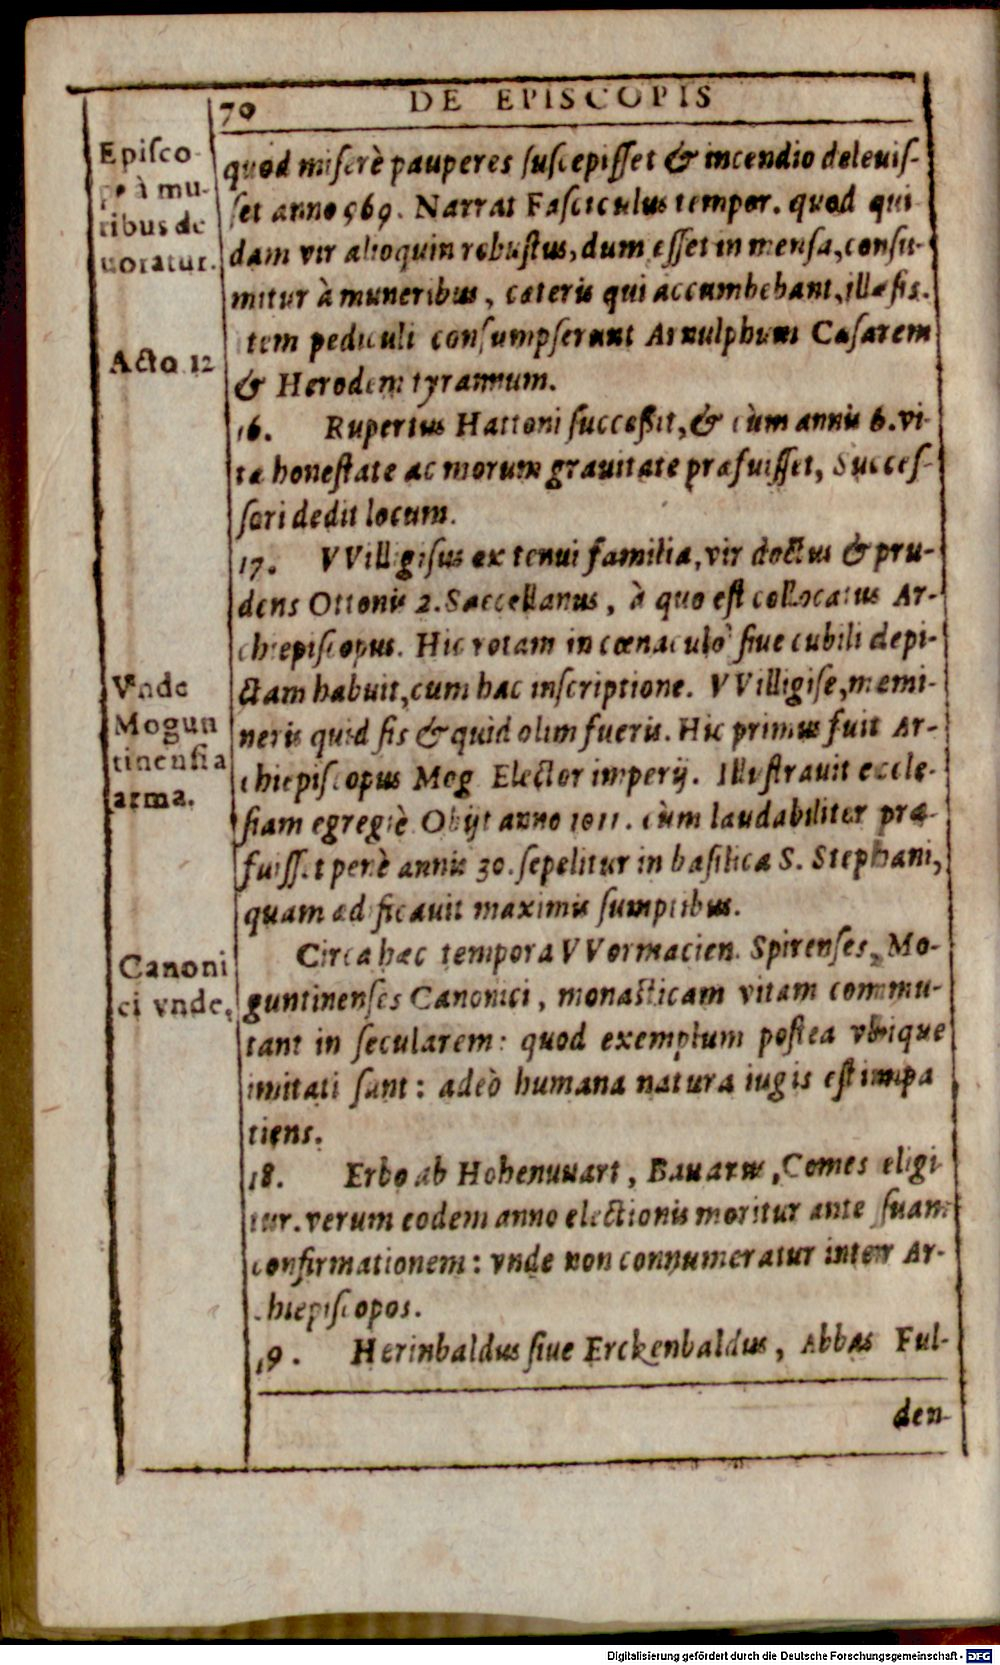 70 DE EPISCOPIS
Episco-
pe à mu-
ribus de
uoratur.
quod miserè pauperes suscepisset & incendio deleuis-
set anno 969. Narrat Fasciculus tempor. quod qui
dam vir alioquin robustus, dum esset in mensa, consu-
mitur à muneribus, cæteris qui accumbebant, illæsis.
tem pediculi consumpserunt Arnulphum Cæsarem
Acto 12
& Herodem tyrannum.
16. Rupertus Hattoni successit, & cùm annis 6. vi-
tæ honestate ac morum grauitate præfuisset, Succes-
sori dedit locum.
17. VVilligisus ex tenui familia, vir doctus & pru-
dens Ottonis 2. Saccellanus, à quo est collocatus Ar-
chiepiscopus. Hic rotam in cœnaculo siue cubili depi-
Vnde
Mogun
tinensia
arma.
ctam habuit, cum hac inscriptione. VVilligise, memi-
neris quid sis & quid olim fueris. Hic primus fuit Ar-
chiepiscopus Mog. Elector imperij. Illustrauit eccle-
siam egregiè Obijt anno 1011. cùm laudabiliter præ-
fuisset penè annis 30. sepelitur in basilica S. Stephani,
quam ædificauit maximis sumptibus.
Canoni
ci vnde.
Circa hæc tempora VVormacien. Spirenses, Mo-
guntinenses Canonici, monasticam vitam commu-
tant in secularem: quod exemplum postea vbique
imitati sunt: adeò humana natura iugis est impa
tiens.
18. Erbo ab Hohenuuart, Bauarus, Comes eligi
tur. verum eodem anno electionis moritur ante suam
confirmationem: vnde non connumeratur inter Ar-
chiepiscopos.
19. Herinbaldus siue Erckenbaldus, Abbas Ful-
den-
Digitalisierung gefördert durch die Deutsche Forschungsgemeinschaft - DFG